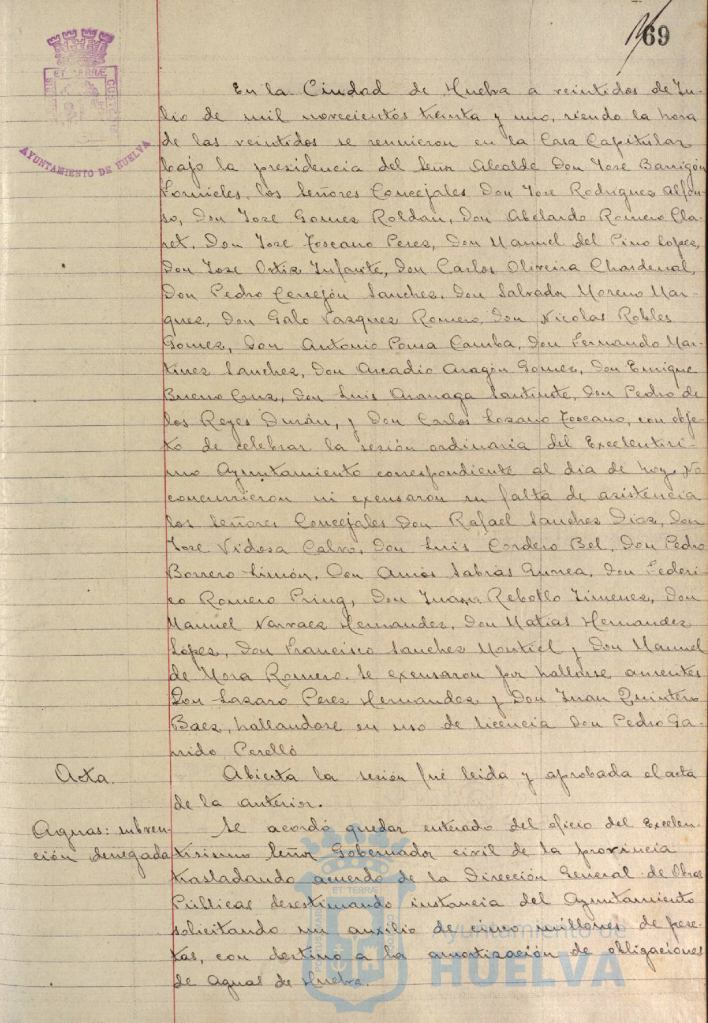 69
AYUNTAMIENTO DE HUELVA
En la Ciudad de Huelva a veintidos de Ju-
lio de mil novecientos treinta y uno, siendo la hora
de las veintidos se reunieron en la Casa Capitular
bajo la presidencia del Señor Alcalde Don José Barrigón
Fornieles, los Señores Concejales Don José Rodriguez Alfon-
so, Don Jose Gomez Roldán, Don Abelardo Romero Cla-
ret, Don Jose Toscano Perez, Don Manuel del Pino Lopez,
Don Jose Ortiz Infante, Don Carlos Oliveira Chardenal,
Don Pedro Cerrejón Sanchez, Don Salvador Moreno Mar-
quez, Don Galo Vazquez Romero, Don Nicolas Robles
Gomez, Don Antonio Pousa Camba, Don Fernando Mar-
tinez Sanchez, Don Arcadio Aragón Gomez, Don Enrique
Bueno Cruz, Don Luis Aranaga Santirste, Don Pedro de
los Reyes Durán, y Don Carlos Lozano Toscano, con obje-
to de celebrar la sesión ordinaria del Excelentisi-
mo Ayuntamiento correspondiente al dia de hoy. No
concurrieron ni excusaron su falta de asistencia
los Señores Concejales Don Rafael Sanchez Diaz, Don
Jose Vidosa Calvo, Don Luis Cordero Bel, Don Pedro
Borrero Limón, Don Amós Sabrás Gurrea, Don Federi-
co Romero Pring, Don Juan Rebollo Jimenez, Don
Manuel Narvaez Hernandez, Don Matias Hernandez
López, Don Francisco Sanchez Montiel y Don Manuel
de Mora Romero. Se excusaron por hallarse ausentes
Don Lazaro Perez Hernandez y Don Juan Quintero
Baez, hallandose en uso de licencia Don Pedro Ga-
rrido Perelló
Acta.
Abierta la sesión fué leida y aprobada el acta
de la anterior.
Aguas: subven-
ción denegada
Se acordó quedar enterado del oficio del Excelen-
tisimo Señor Gobernador civil de la provincia
trasladando acuerdo de la Dirección General de Obras
Públicas desestimando instancia del Ayuntamiento
solicitando un auxilio de cinco millones de pese-
tas, con destino a la amortización de obligaciones
de aguas de Huelva.
Ayuntamiento de
HUELVA